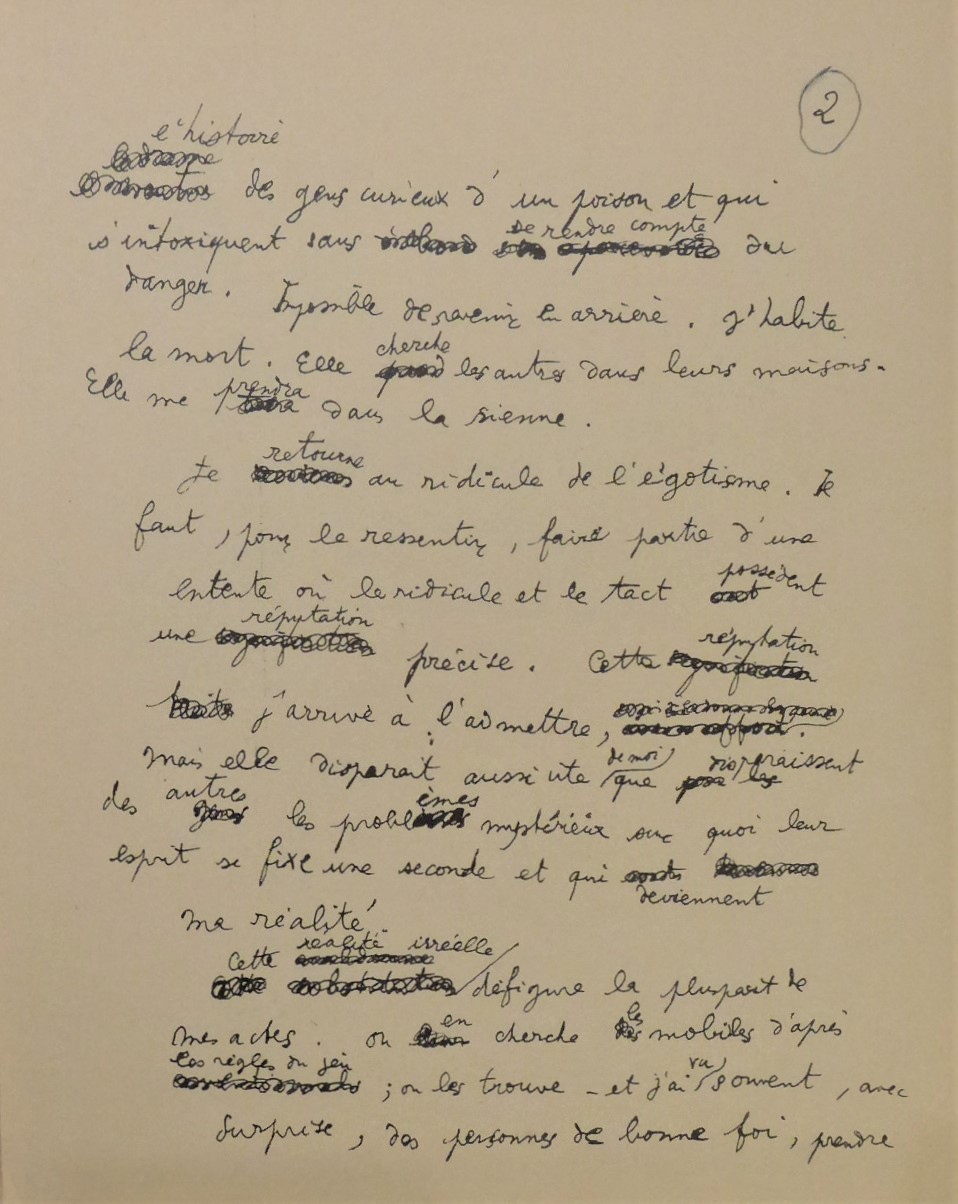 2
l'histoire
des gens curieux d'un poison et qui
s'intoxiquent sans se rendre compte du
danger. Impossible de revenir en arrière. J'habite
la mort. Elle cherche les autres dans leurs maisons.
Elle me prendra dans la sienne.
Je retourne au ridicule de l'égotisme. Il
faut, pour le ressentir, faire partie d'une
entente où le ridicule et le tact possèdent
une réputation précise. Cette réputation
j'arrive à l'admettre,
mais elle disparait aussi vite de moi que disparaissent
des autres les problèmes mystérieux sur quoi leur
esprit se fixe une seconde et qui deviennent
ma réalité.
Cette réalité irréelle défigure la pluspart de
mes actes. on en cherche les mobiles d'après
les règles du jeu ; on les trouve - et j'ai vu souvent, avec
surprise, des personnes de bonne foi, prendre